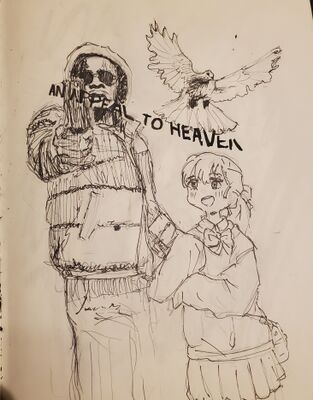 AN APPEAL TO HEAVEN